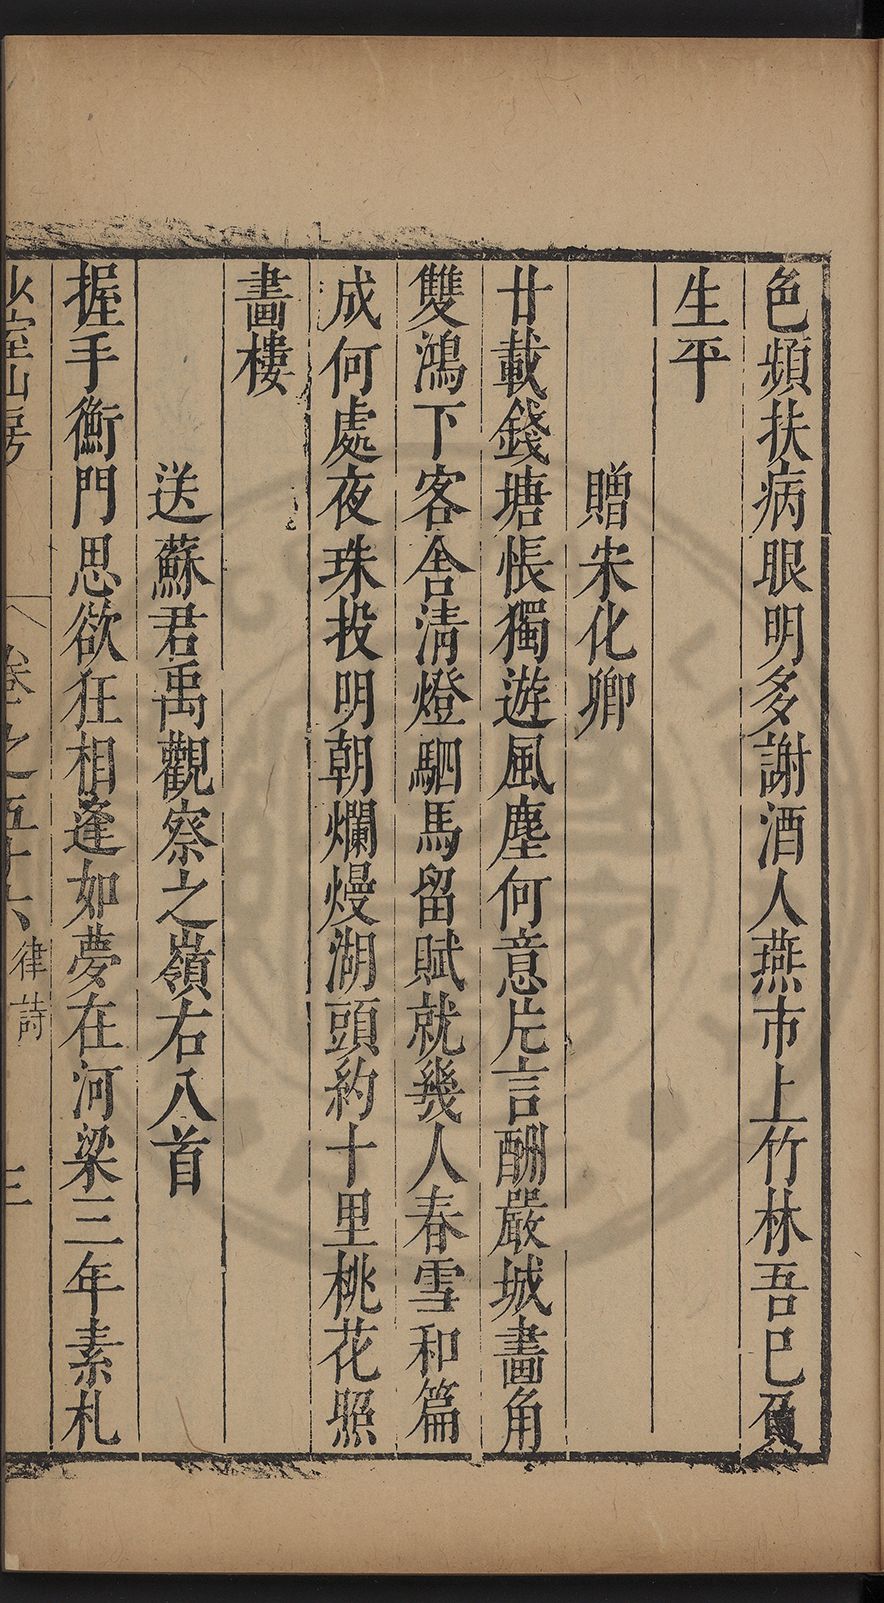 色頻扶病眼明多謝酒人燕市上竹林吾已負
生平
贈宋化卿
廿載錢塘悵獨遊風塵何意片言酬嚴城畫角
雙鴻下客舍清燈駟馬留賦就幾人春雪和篇
成何處夜珠投明朝爛熳湖頭約十里桃花照
畫樓
送蘇君禹觀察之嶺右八首
握手衡門思欲狂相逢如夢在河梁三年素札
少室山房
卷之五十六
律詩
三